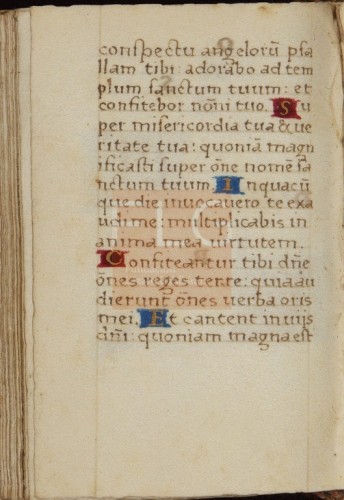 conspectu angelorū psa
llam tibi: adorabo ad tem
plum sanctum tuum: et
confitebor nōni tuo. Su
per misericordia tua & ue
ritate tua: quoniā magn
ificasti super ōne nomē sa
nctum tuum. In quacū
que die inuocauero te exa
udi me: multiplicabis in
anima mea uirtutem.
Confiteantur tibi dn̄e
ōnes reges terre: quia au
dierunt ōnes uerba oris
mei. Et cantent in uijs
dn̄i: quoniam magna est